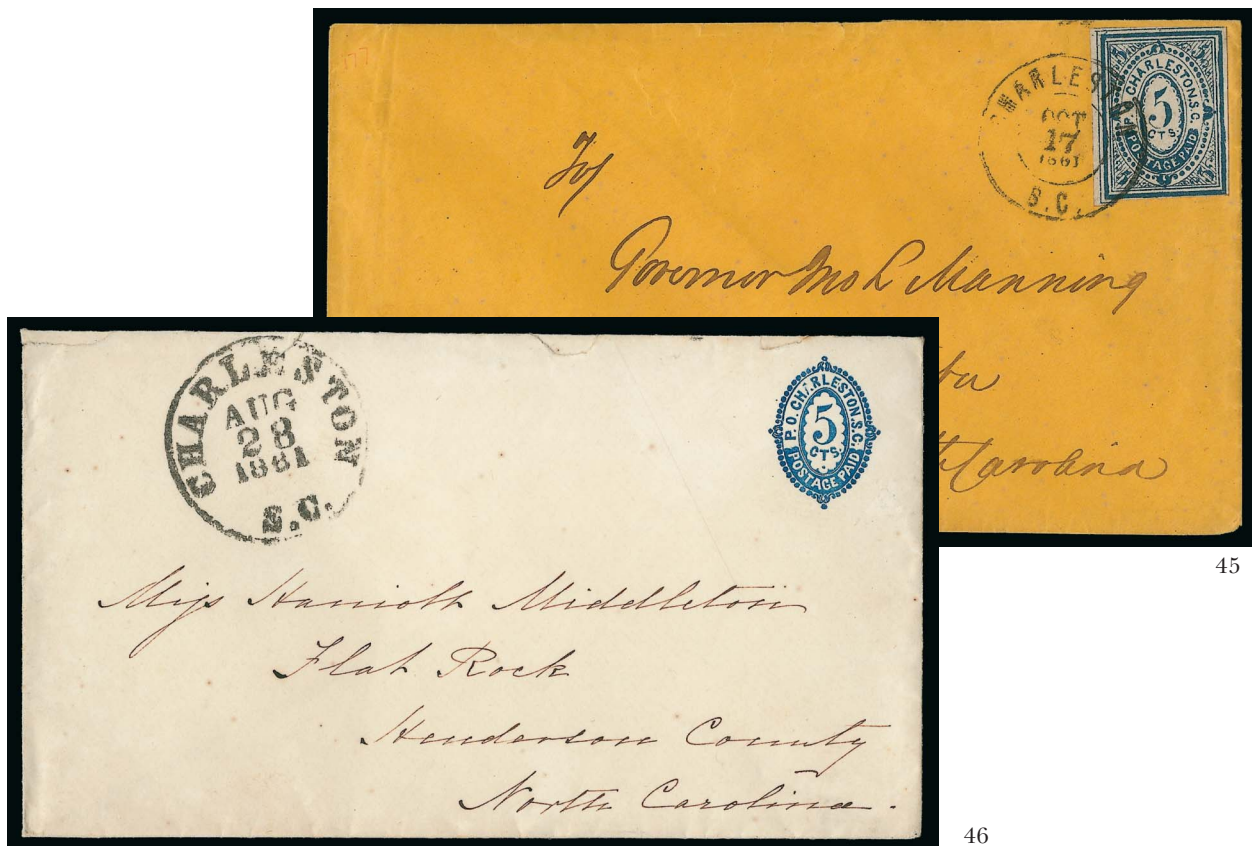 77
CHARLESTON
OCT
17
1861
S.C.
5 5
P.O. CHARLESTON. S.C.
5
CTS.
POSTAGE PAID
5 5
To/
Governor Jno L Manning
Carolina
45
CHARLESTON
AUG
28
1861
S.C.
P.O. CHARLESTON. S.C.
5
CTS.
POSTAGE PAID
Miss Harriott Middleton
Flat Rock
Henderson County
North Carolina.
46